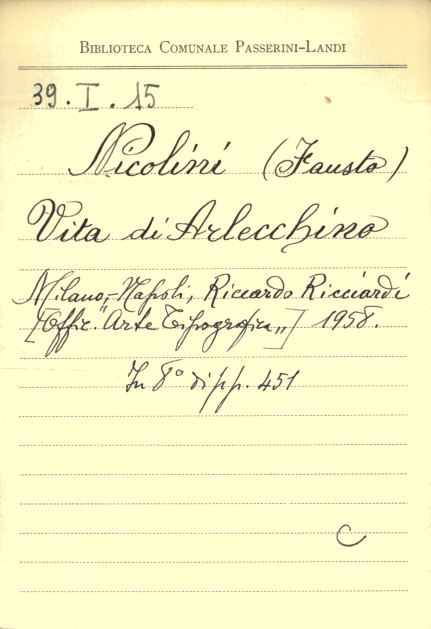 BIBLIOTECA COMUNALE PASSERINI-LANDI
39. I. 15
Nicolini (Fausto)
Vita di Arlecchino
Milano,-Napoli, Riccardo Ricciardi
[Offic. "Arte Tipografica„] 1958.
In 8° di pp. 451
C